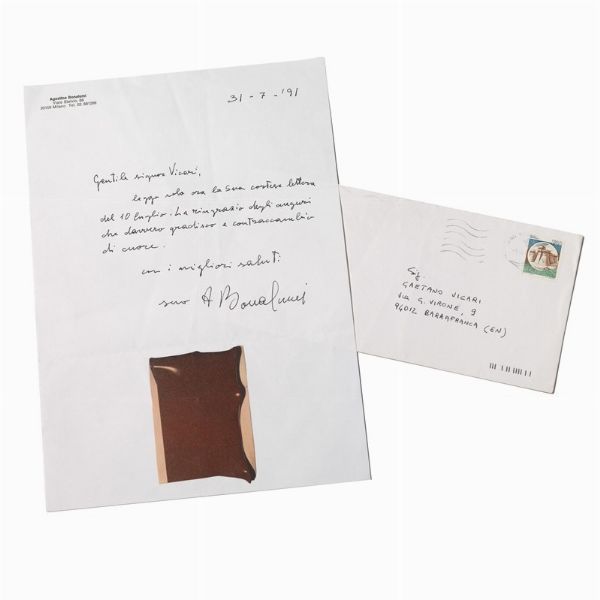 Agostino Bonalumi
31 - 7 - '91
Gentile signor Vicari,
leggo solo ora la Sua cortese lettera
del 10 luglio. La ringrazio degli auguri
che davvero gradisco e contraccambio
di cuore.
con i migliori saluti
suo A Bonalumi
Sig.
GAETANO VICARI
VIA G. VIRONE, 9
94012 BARRAFRANCA (EN)